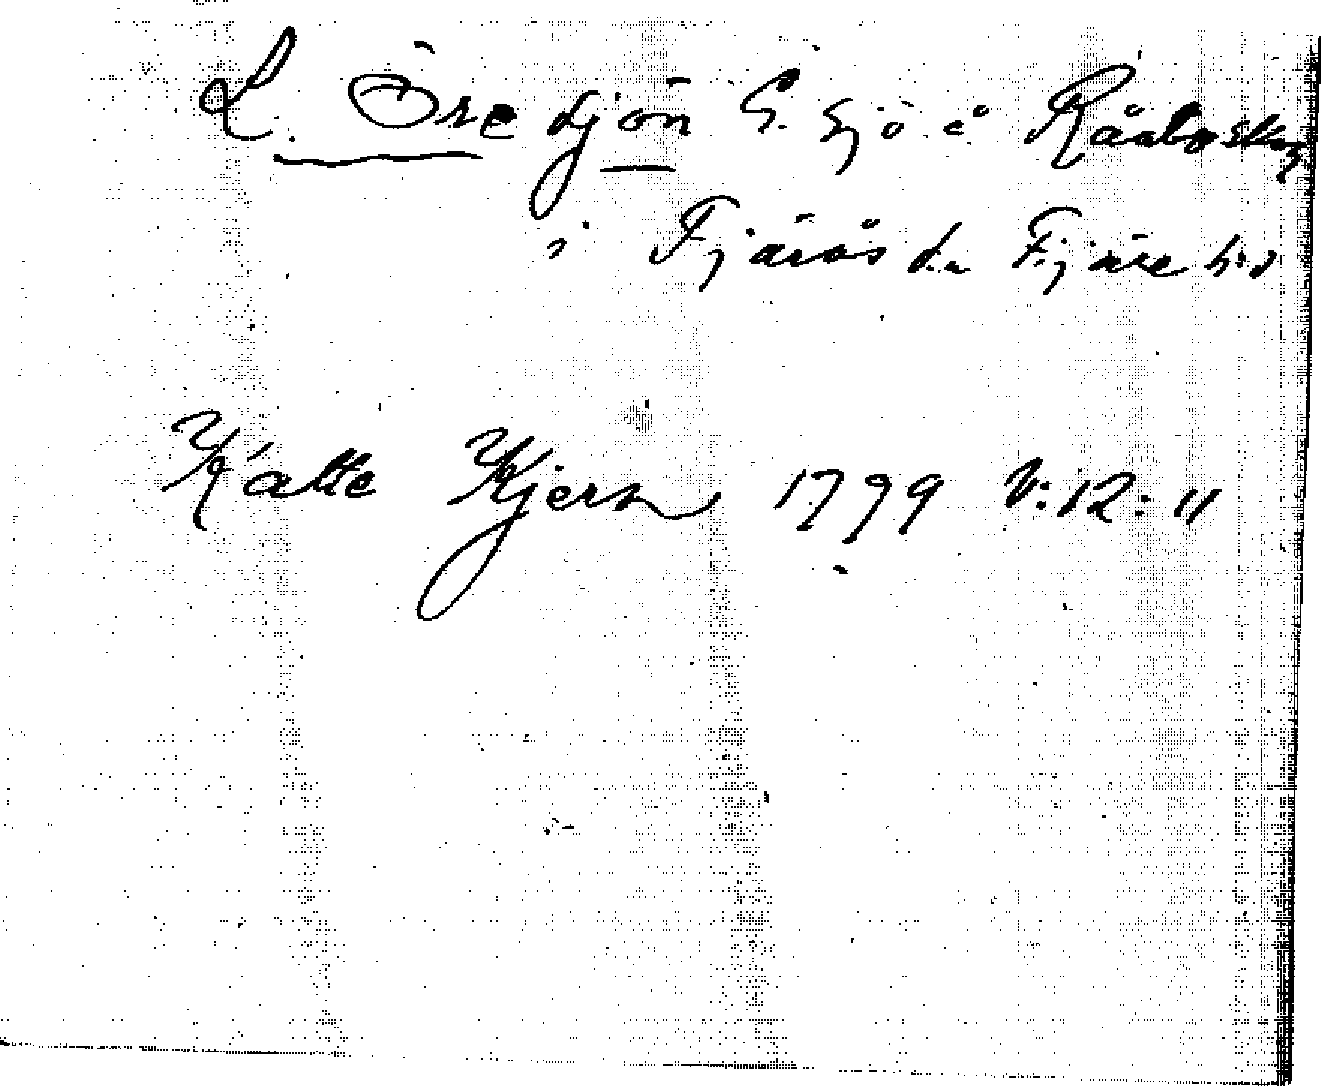 L. Öresjön S. sjö å Råaboskog
i Fjärås sn Fjäre hd
Kalle Kjern 1799 V:12:11